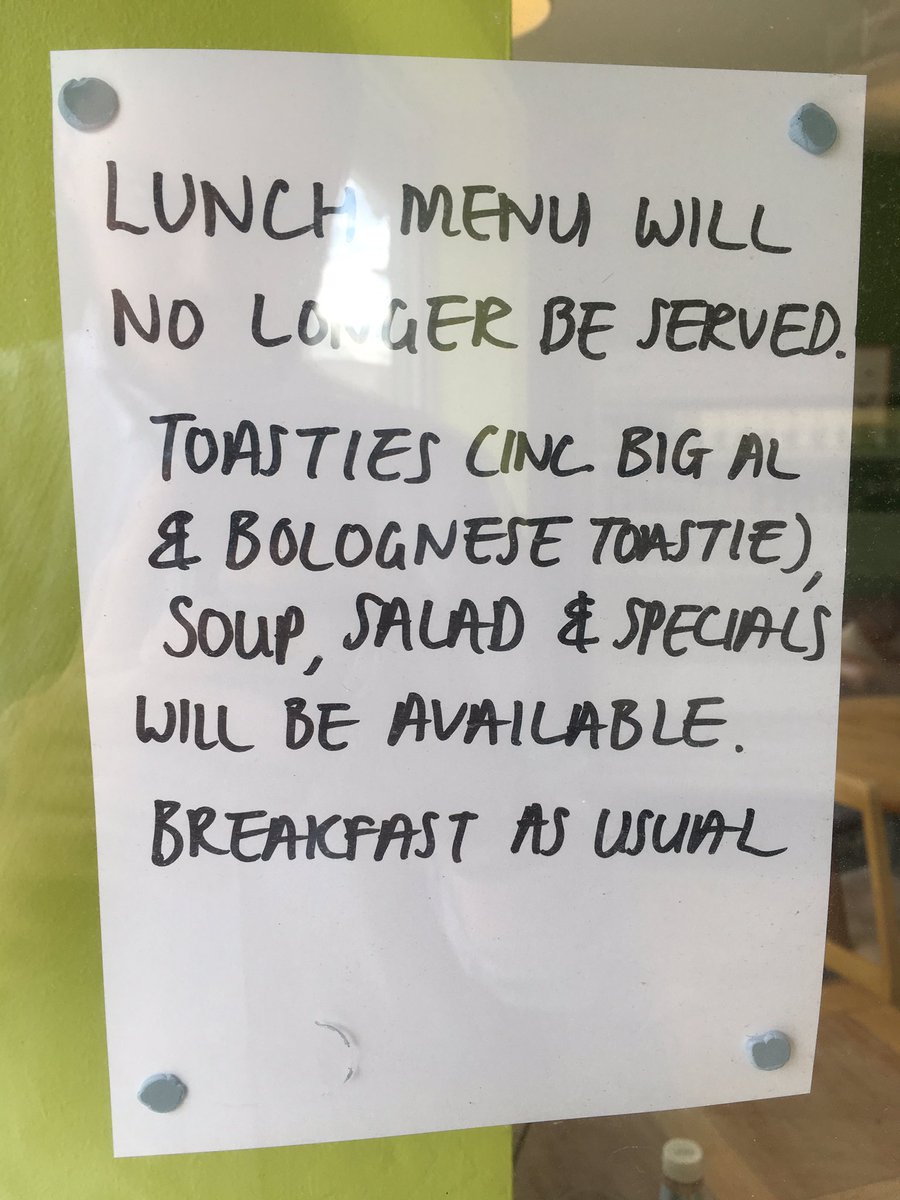 LUNCH MENU WILL
NO LONGER BE SERVED.
TOASTIES (INC BIG AL
& BOLOGNESE TOASTIE),
SOUP, SALAD & SPECIALS
WILL BE AVAILABLE.
BREAKFAST AS USUAL